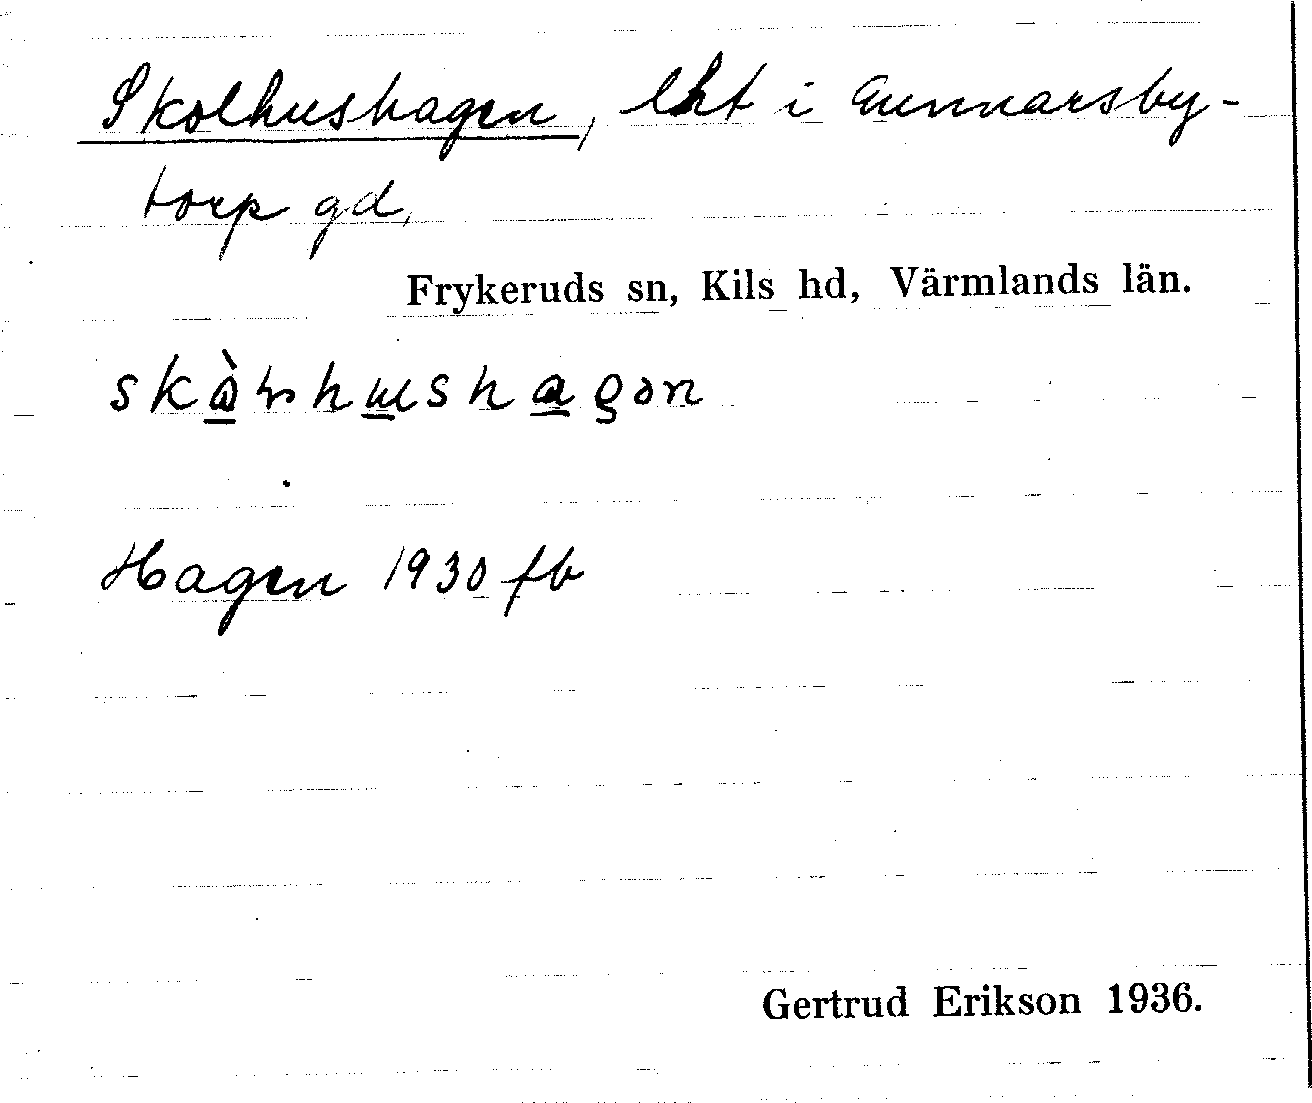 Skolhushagen, lht i Gunnarsby-
torp gd,
Frykeruds sn, Kils hd, Värmlands län.
Hagen 1930 fb
Gertrud Erikson 1936.